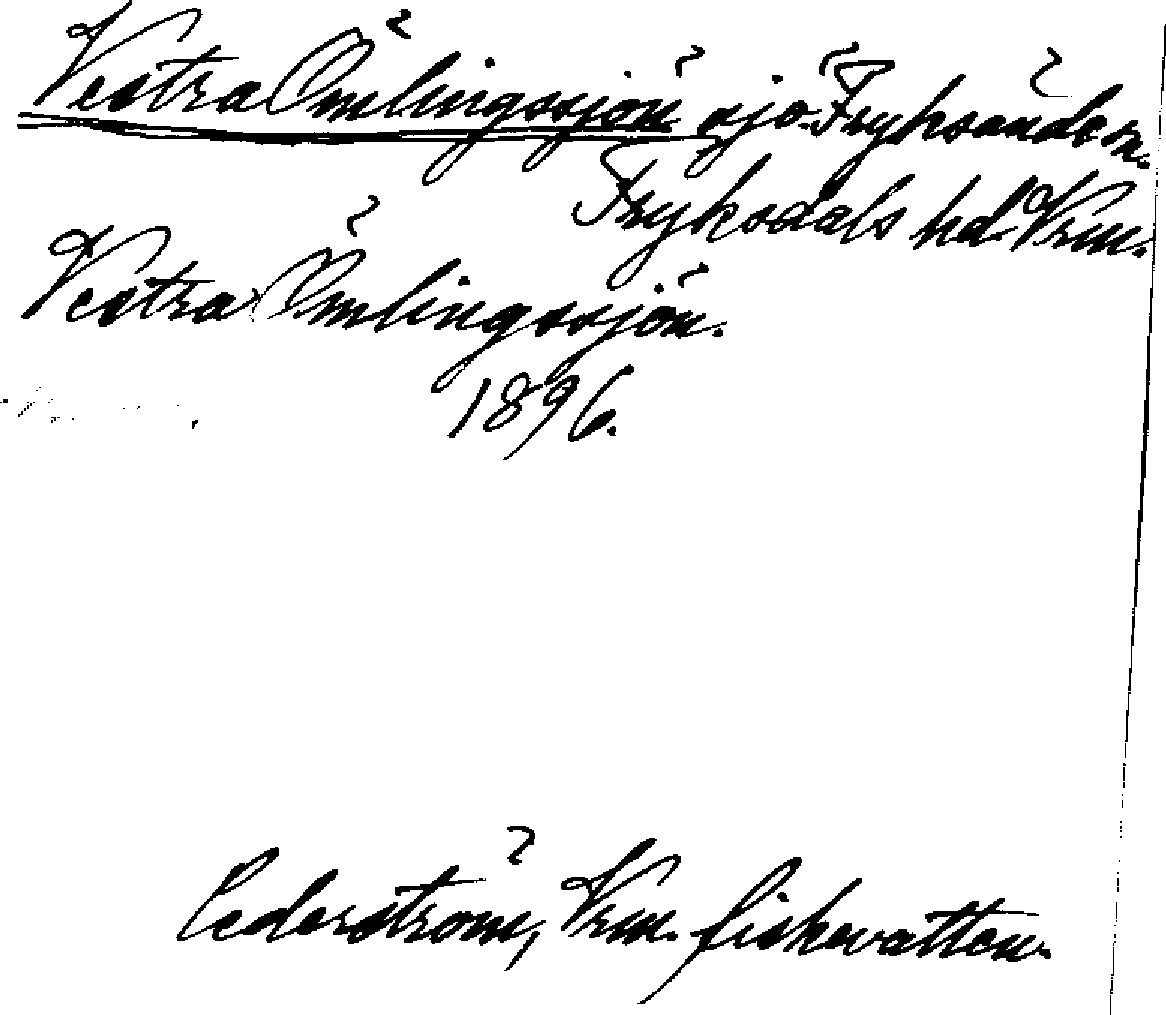 Vestra Ömlingssjön sjö. Fryksände sn.
Fryksdals hd Vrm.
Vestra Ömlingssjön.
1896.
Cederström, Vrm. fiskevatten.